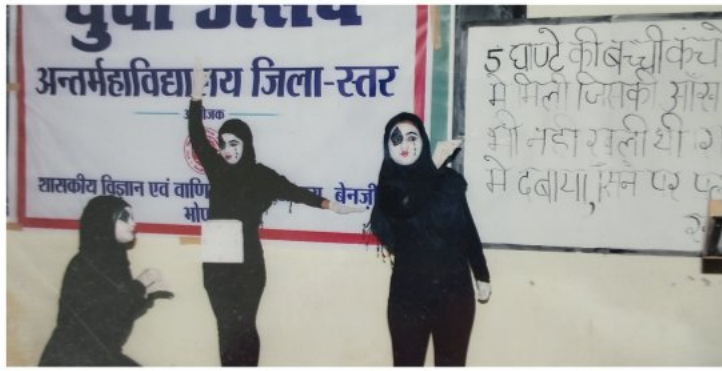 युवा उत्सव
अन्तर्महाविद्यालय जिला-स्तर
शासकीय विज्ञान एवं वाणि
बेनज़ी
भोप
5 घाण्टे की बच्ची कच
मे मिली जिसकी आँख
भी नही खुली थी
मे दबाया, सिने पर